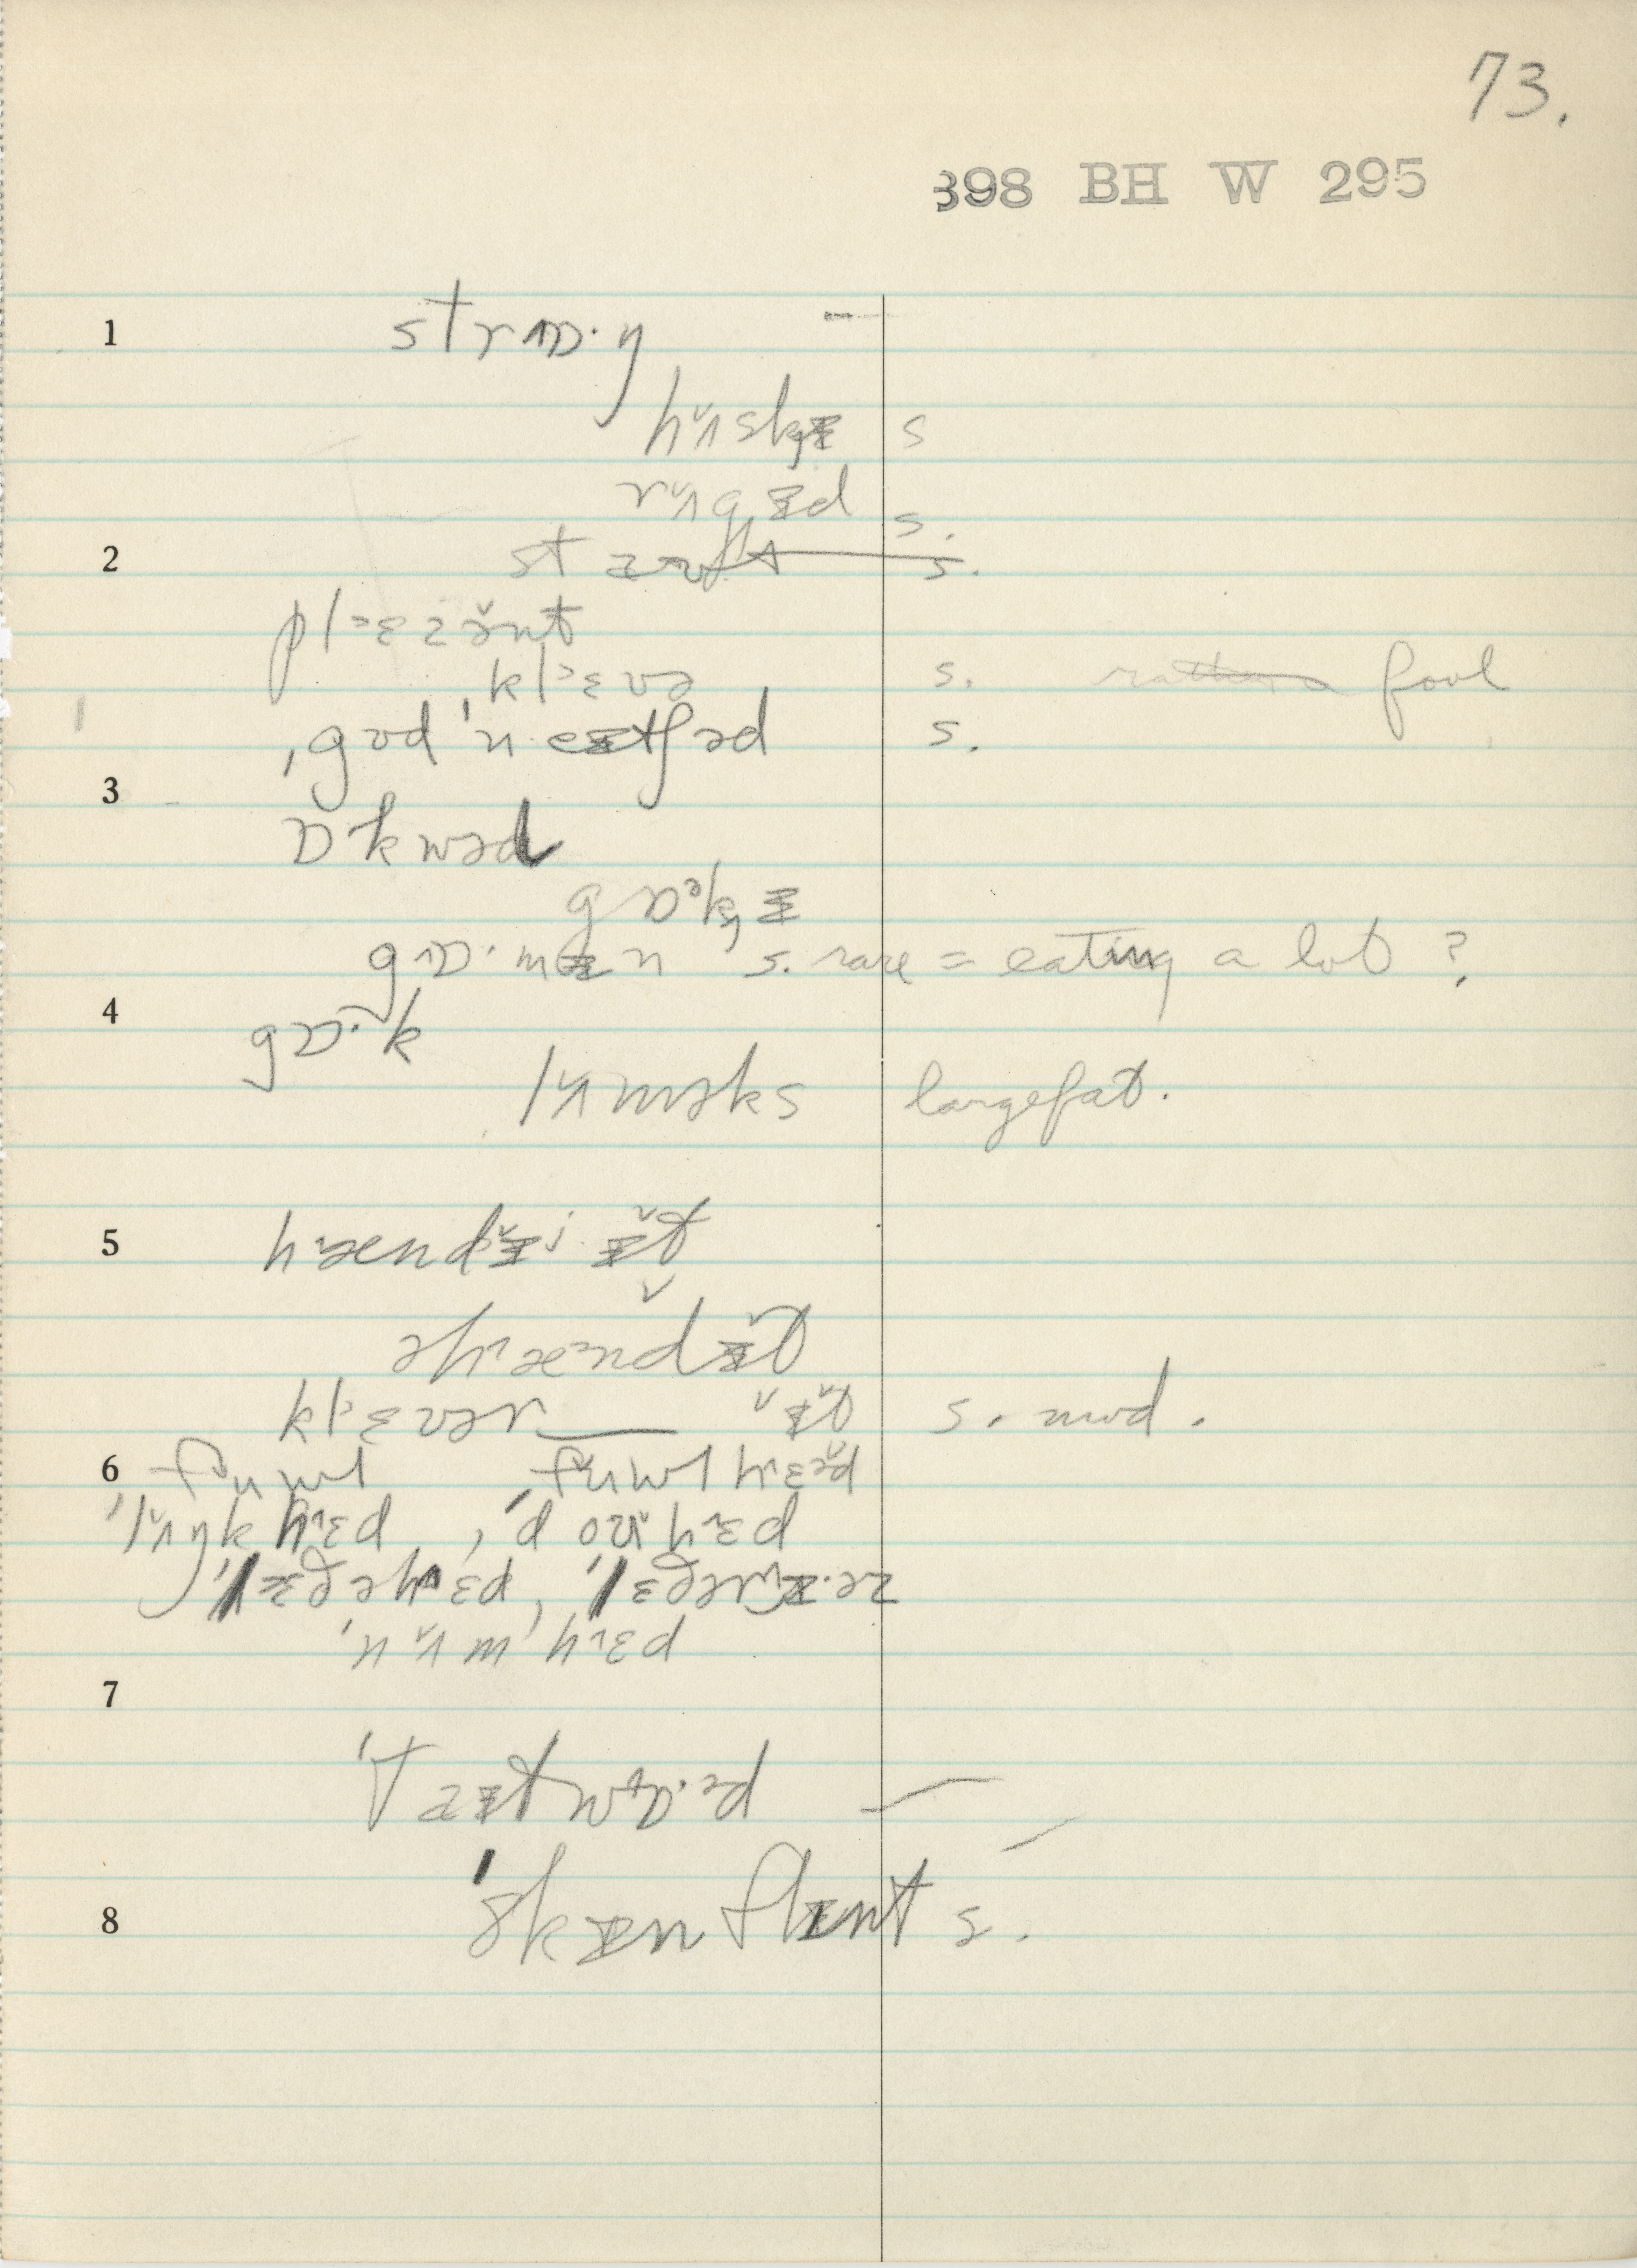 73.
398 BH W 295
1 strɒ·ŋ –
hʌ̆sk̡ɪ s
rʌ̆gɪd s.
2 st s.
pl˃ɛzə̆nt
ˌkl˃ɛvə s. fool
ˌgʊdˈneɪtʃəd s.
3 ɒkwəd
gɒᵊk̡ɪ
gɒ·mɪn s. rare = eating a lot ?
4 gɒ·k
lʌ̆məks large fat.
5 hændɪ̆j ɪ̆t
əhændɪ̆t
kl˃ɛvər ɪ̆t s. mud.
6 fʊwl fʊwl hɛd
ˈlʌ̆ŋkhɛd, ˈd hɛd
ˈlɛðəhɛd, ˈlɛðər
ˈnʌ̆mˌhɛd
7
ˈTaɪtwɒ·əd
8 ˈskɪnflɪnt s.